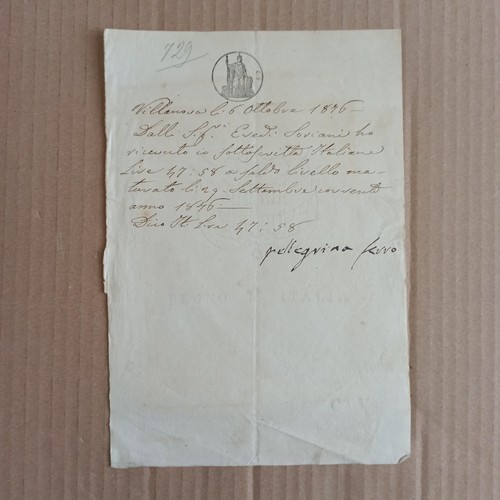 729
Villanova li 6 Ottobre 1846
Dalli S.ri Eredi Soriani ho
ricevuto io sottoscritta Italiane
Lire 47:58 a saldo livello ma-
turato li 29 Settembre corrente
anno 1846
Dico It Lire 47:58
pellegrina ferro